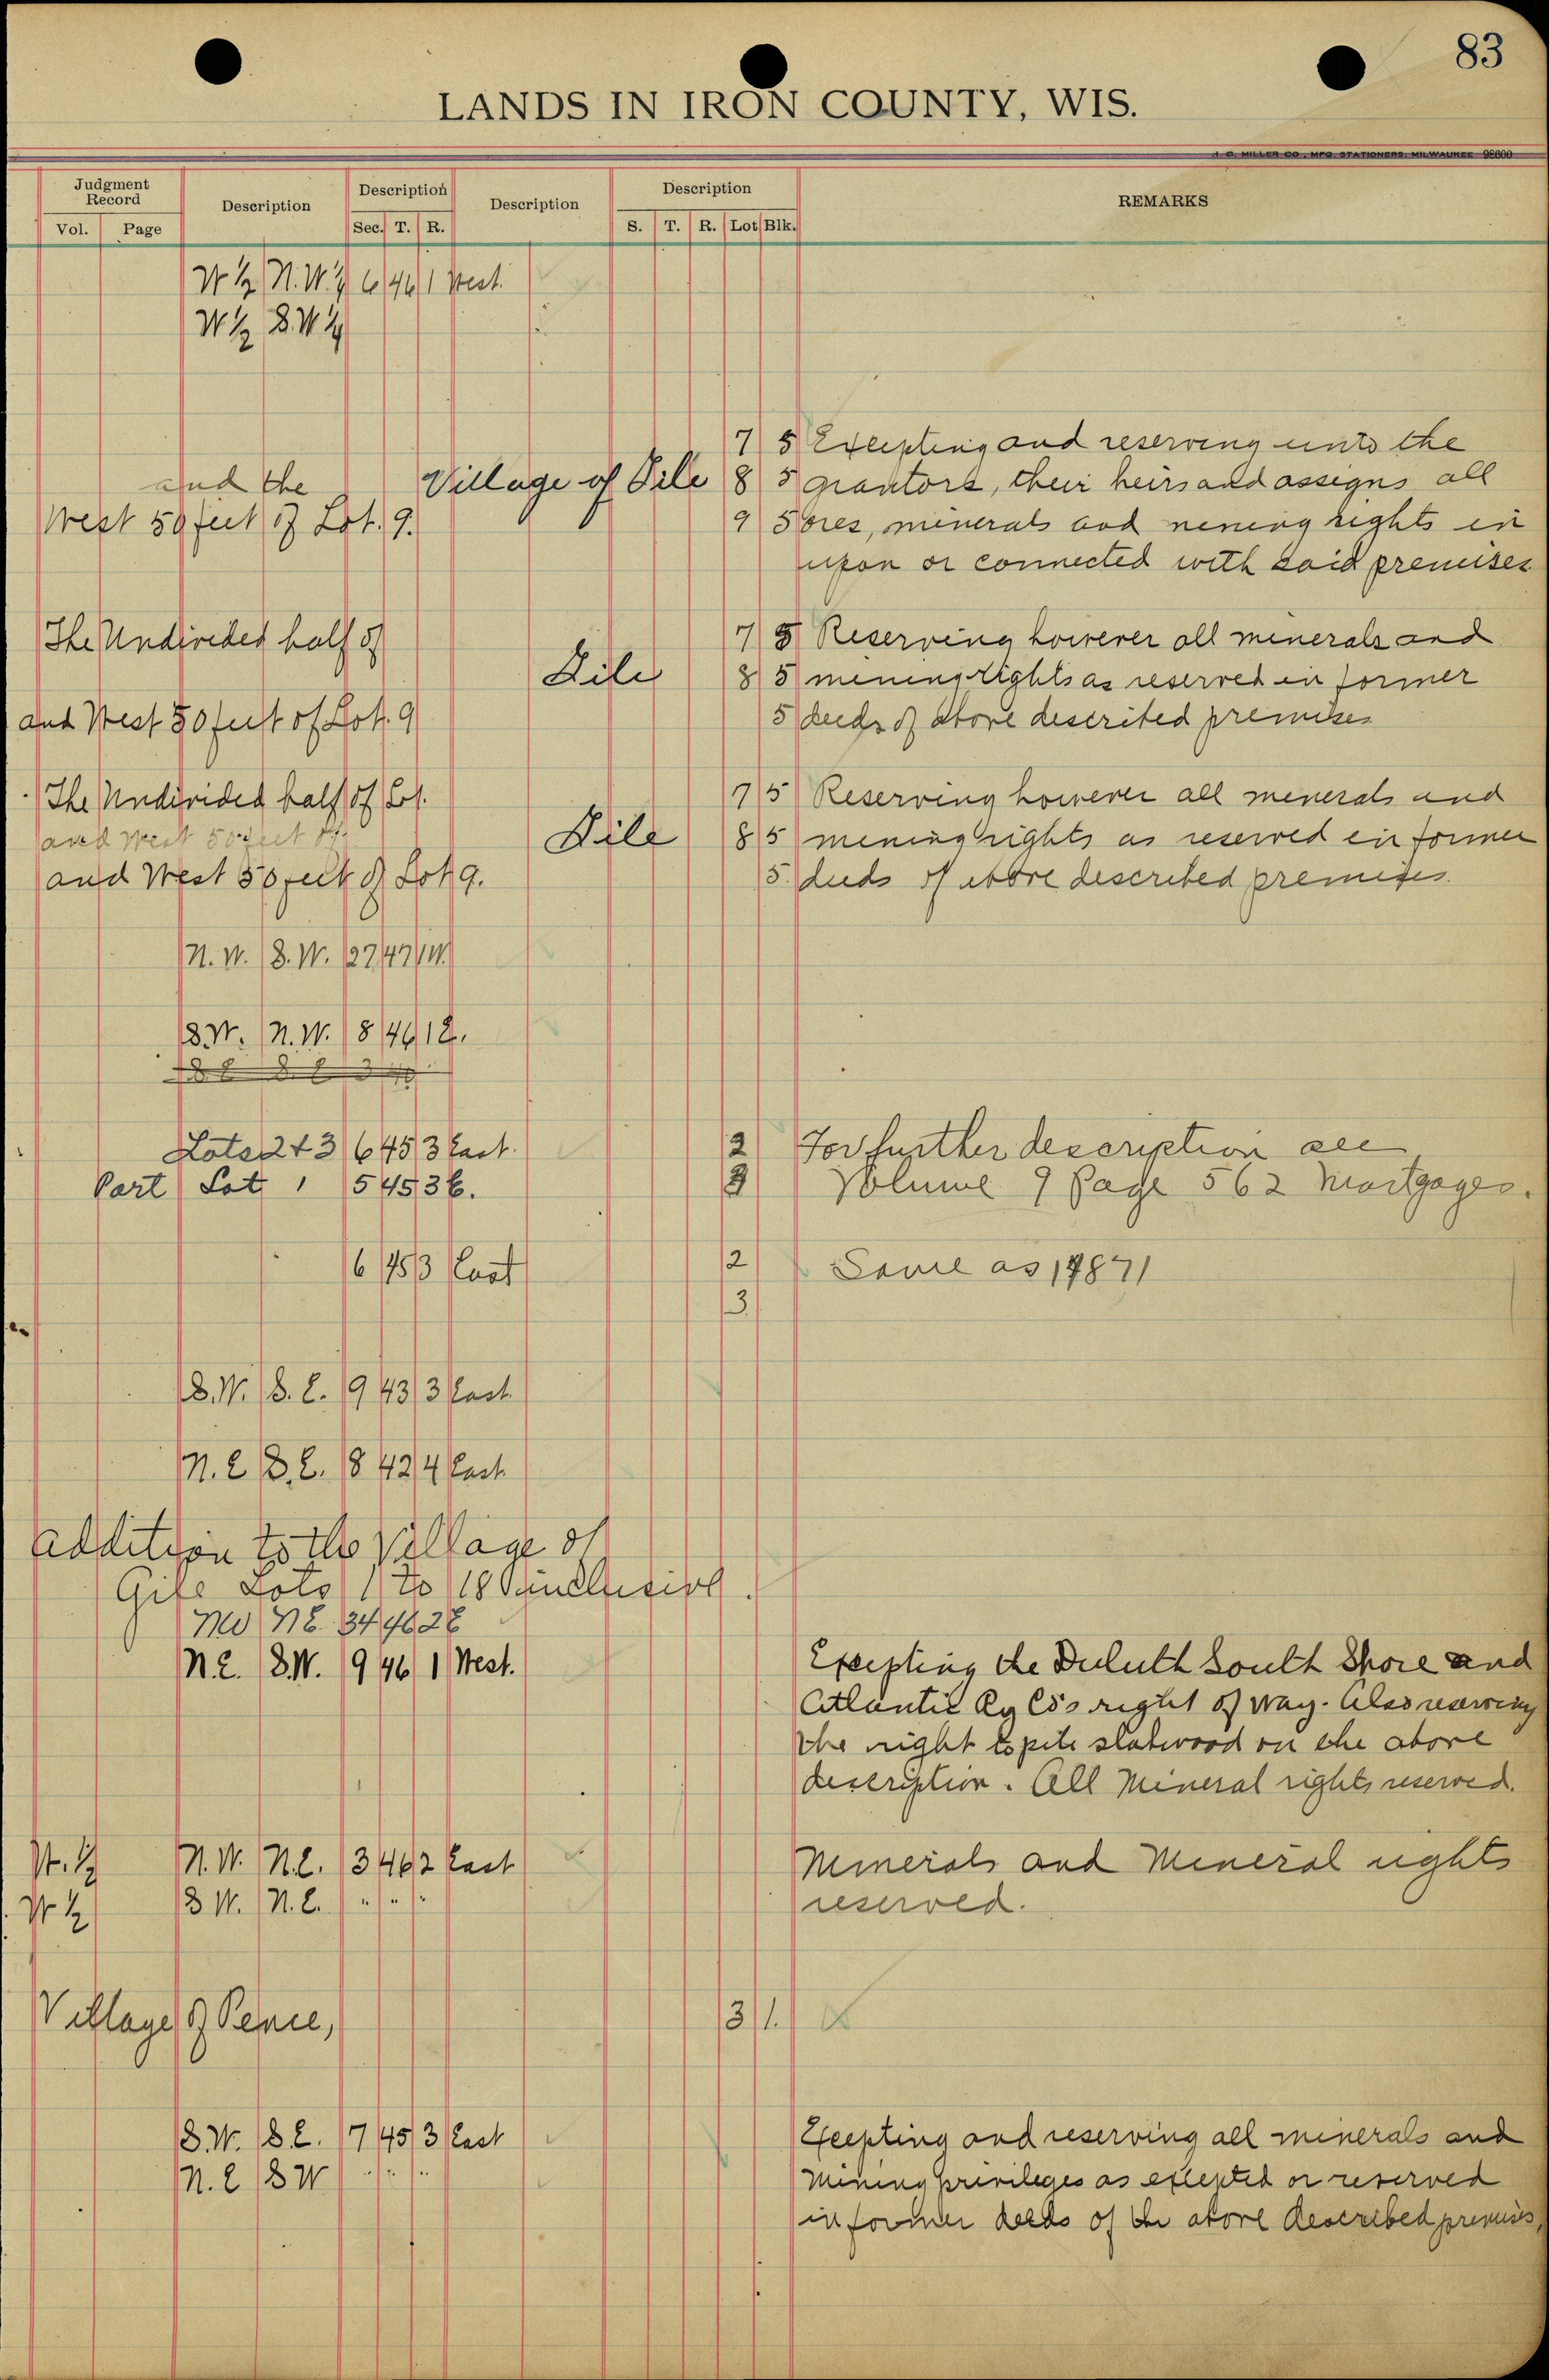 83
LANDS IN IRON COUNTY, WIS.
J. C. MILLER CO., MFG. STATIONERS, MILWAUKEE 98600
Judgment Record Description Description Description Description REMARKS
Vol. Page Sec. T. R. S. T. R. Lot Blk.
W ½ N.W.¼ 6 46 1 West
W ½ S.W ¼
7 5 Excepting and reserving unto the
and the Village of Gile 8 5 grantors, their heirs and assigns all
West 50 feet of Lot. 9. 9 5 ores, minerals and mening rights in
upon or connected with said premises
The Undivided half of 7 5 Reserving however all minerals and
Gile 8 5 mening rights as reserved in former
and West 50 feet of Lot. 9 5 deeds of above described premises
The Undivided half of Lot. 7 5 Reserving however all menerals and
and West 50 feet of Gile 8 5 mening rights as reserved in former
and West 50 feet of Lot 9. 5. deeds of above described premises.
N. W. S. W. 27 47 1 W.
S.W. N. W. 8 46 1 2.
Lots 2 + 3 6 45 3 East. 2 For further description see
Part Lot 1 5 45 3 E. 3 Volume 9 Page 562 Mortgages.
6 45 3 East 2 Same as 14871
3.
S.W. S. E. 9 43 3 East.
N. E S. E. 18 42 4 East
Addition to the Village of
Gile Lots 1 to 18 inclusive.
NW NE 34 46 2E
N.E. S.W. 9 46 1 West. Excepting the Duluth South Shore and
Atlantic Ry Co's right of way. Also reserving
the right to pile slabwood on the above
description. All Mineral rights reserved.
W. ½ N. W. N.E. 3 46 2 East Minerals and Mineral rights
W ½ S W. N. E. " " " reserved.
Village of Pence, 3 1.
S.W. S.E. 17 45 3 East Excepting and reserving all minerals and
N. E S W " " " Mining privileges as excepted or reserved
in former deeds of the above described premises,